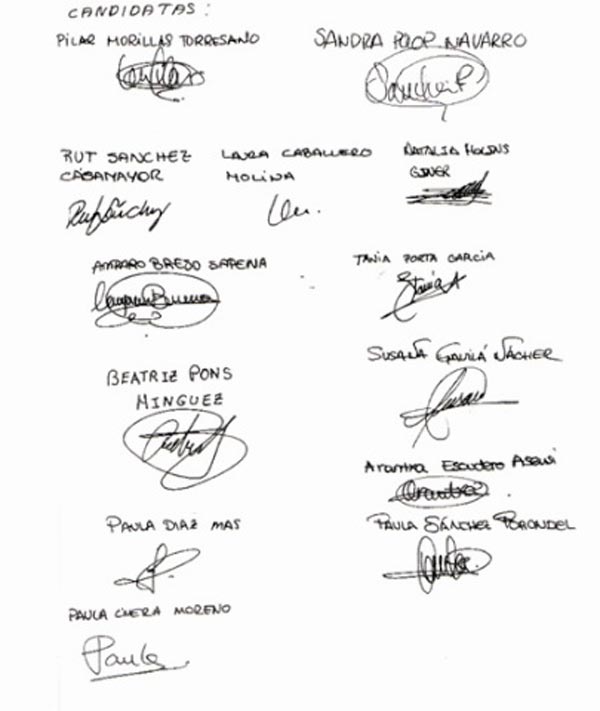 CANDIDATAS:
PILAR MORILLAS TORRESANO
SANDRA POOP NAVARRO
RUT SANCHEZ
CASAMAYOR
LAURA CABALLERO
MOLINA
NATALIA MOLINS
GINER
AMPARO BRESO SAPENA
TANIA PORTA GARCIA
SUSANA GAVILÁ NÁCHER
BEATRIZ PONS
MINGUEZ
Arantxa Escudero Asensi
PAULA DIAZ MAS
PAULA SÁNCHEZ
PAULA CIVERA MORENO
Paula